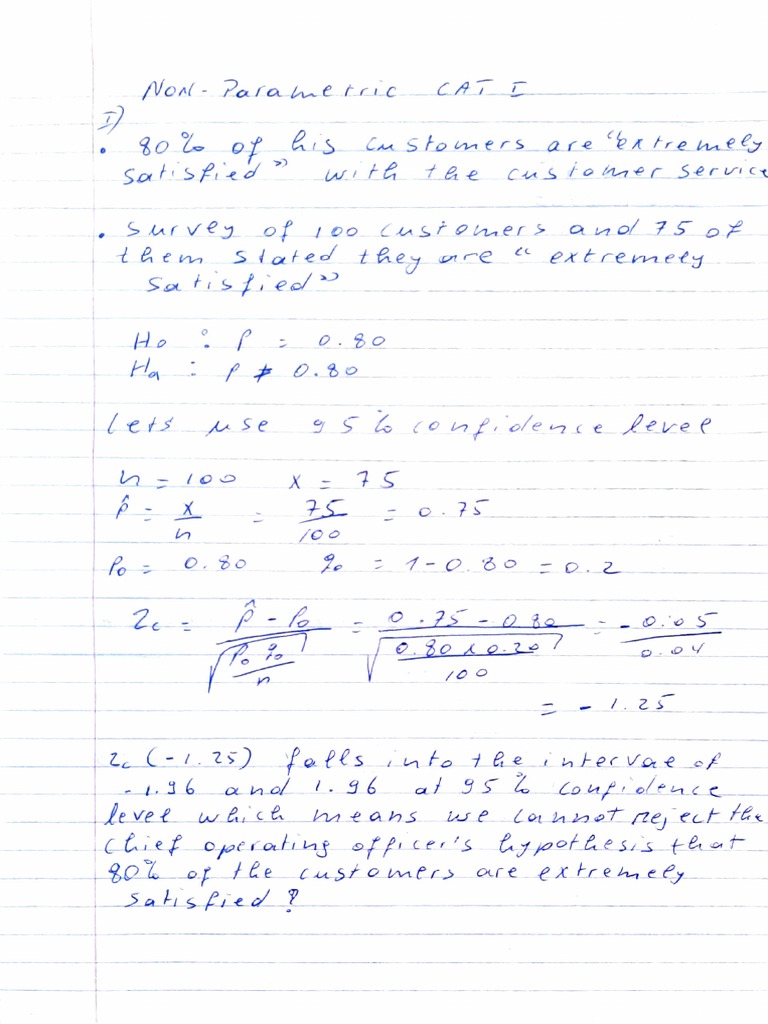 Non-Parametric CAT I
I)
• 80% of his customers are "extremely
satisfied" with the customer service
• Survey of 100 customers and 75 of
them stated they are "extremely
satisfied"
H₀ : P = 0.80
Hₐ : P ≠ 0.80
Lets use 95% confidence level
n = 100 x = 75
p̂ = x/n = 75/100 = 0.75
P₀ = 0.80 q₀ = 1 - 0.80 = 0.2
Zc = (p̂ - P₀)/√(P₀ q₀/n) = (0.75 - 0.80)/√(0.80 x 0.20/100) = -0.05/0.04
= -1.25
Zc (-1.25) falls into the interval of
-1.96 and 1.96 at 95% confidence
level which means we cannot reject the
Chief operating officer's hypothesis that
80% of the customers are extremely
satisfied?